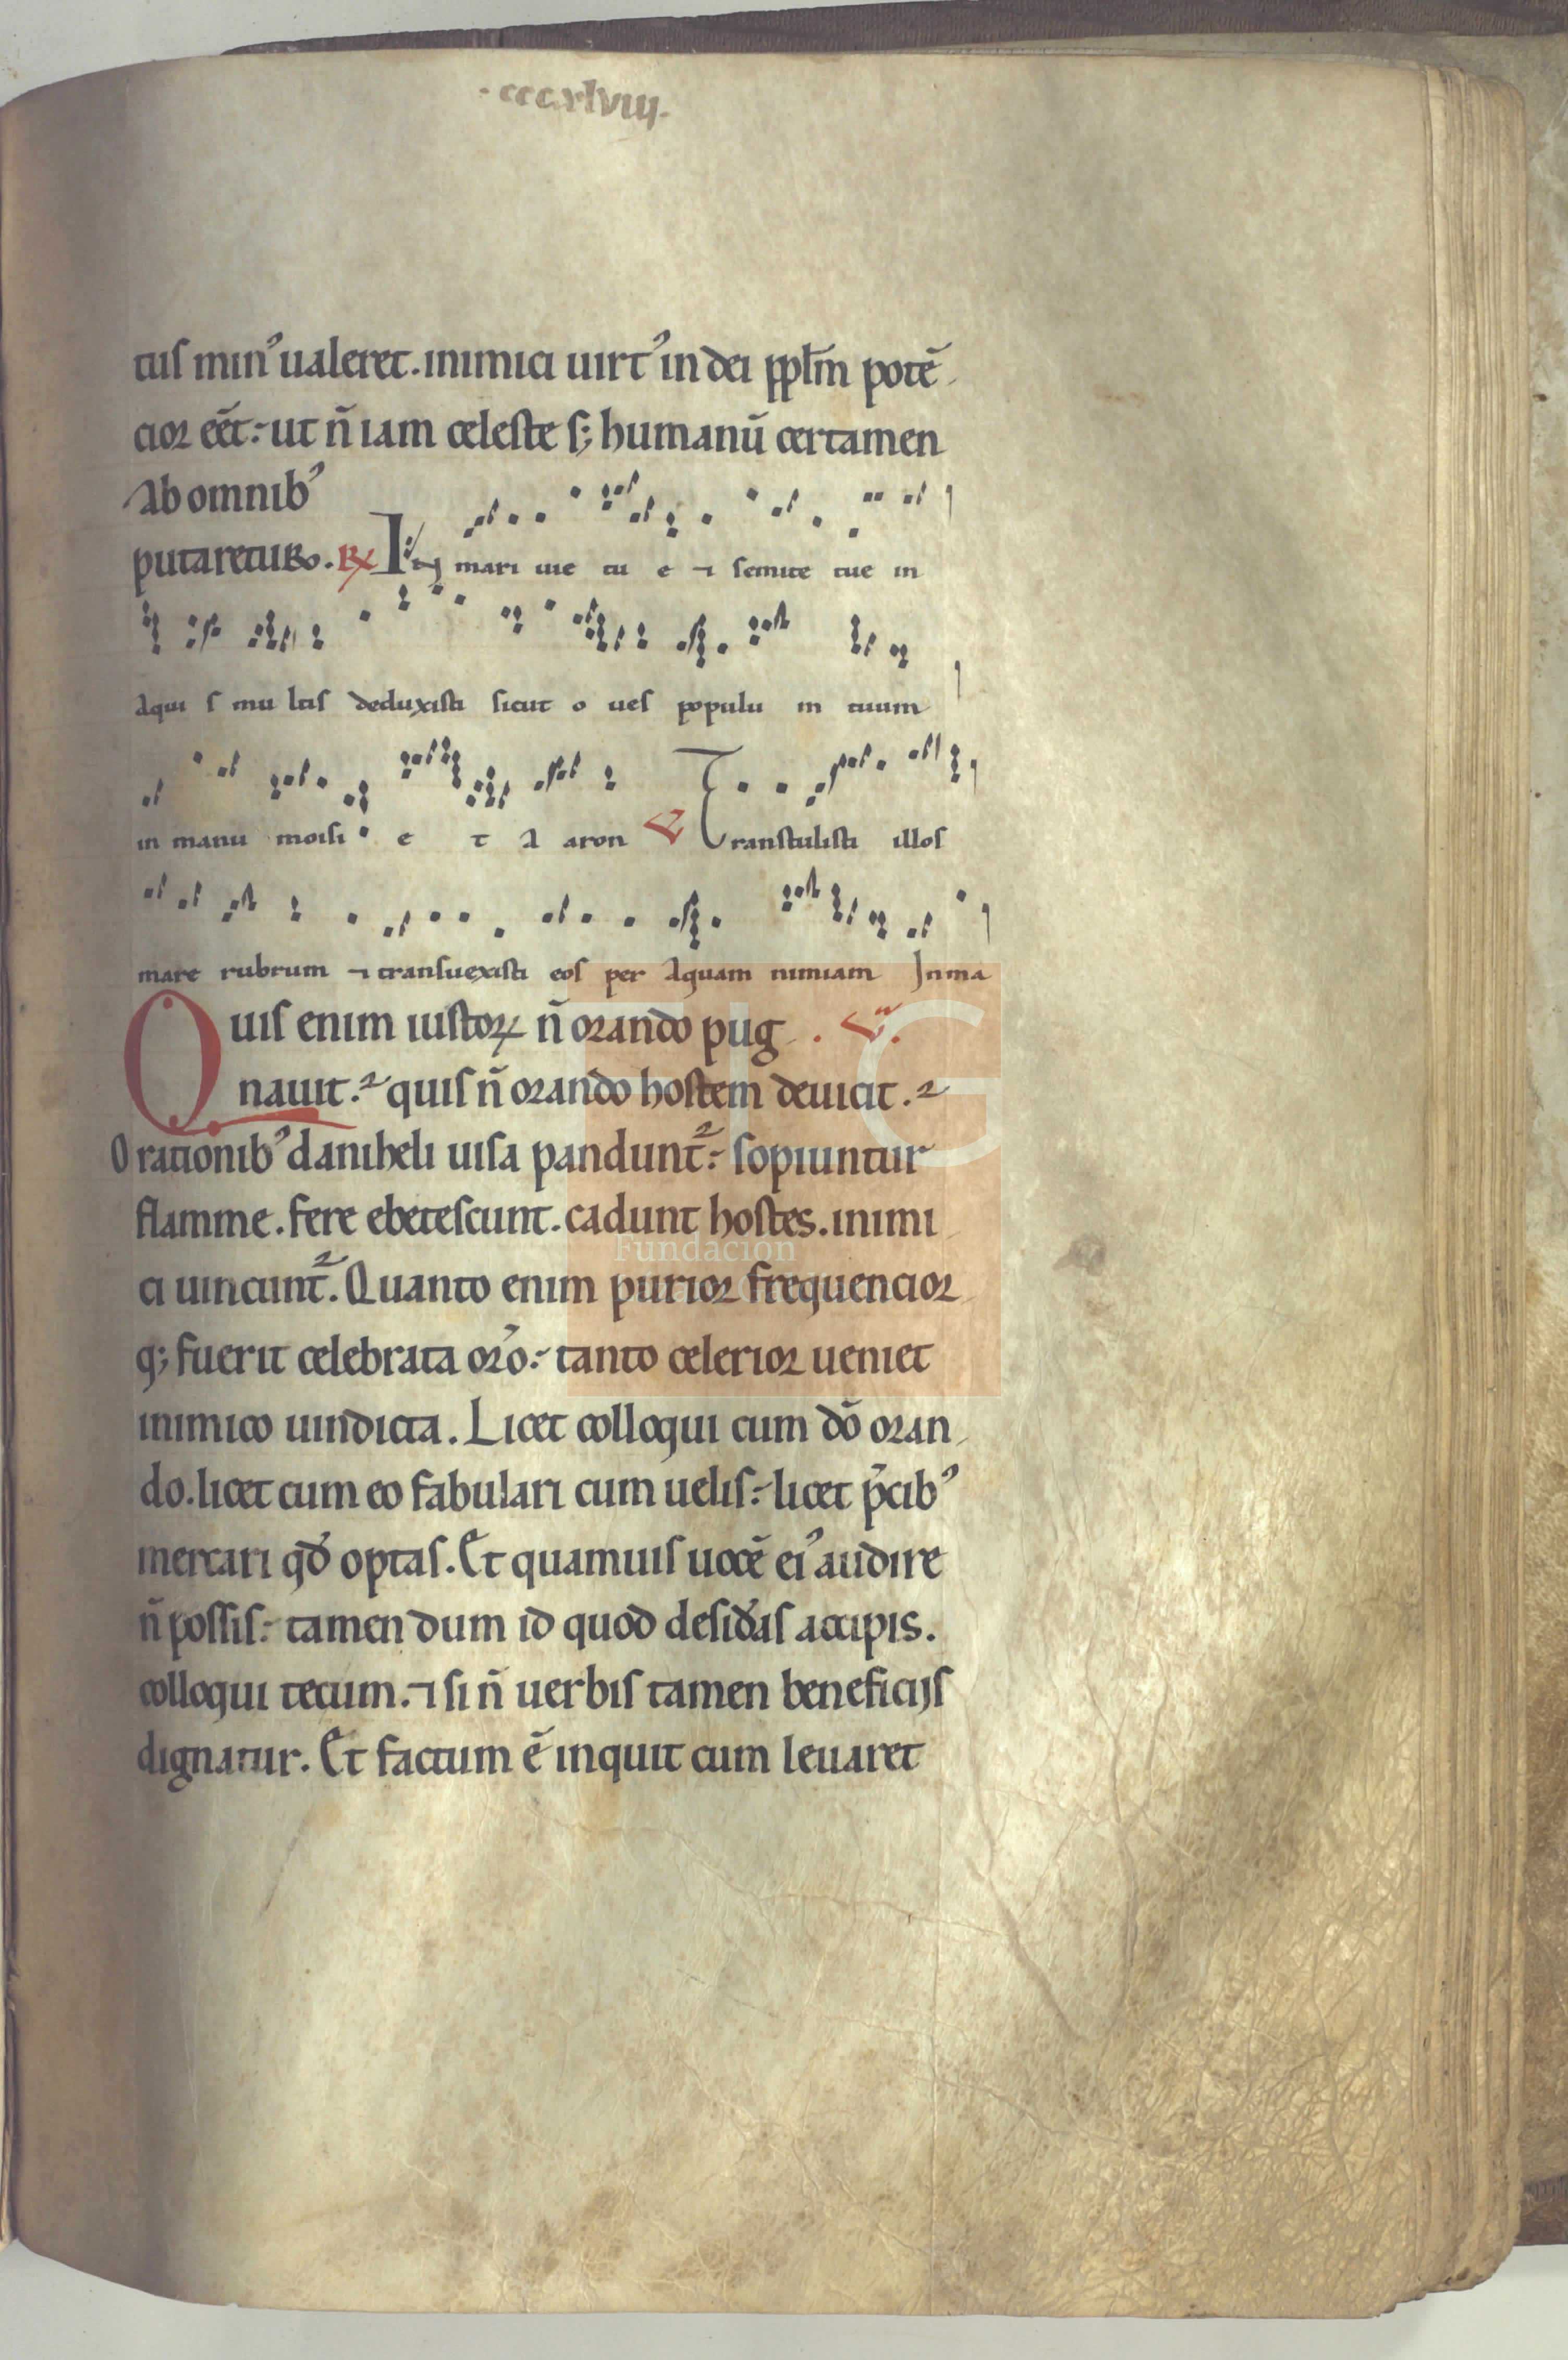 .cccxlviij.
tus min᾽ ualeret. inimici uirt᾽ in dei pp̱lm̄ potē
cior ee͂t: ut n̄ iam celeste s; humanū certamen
Ab omnib᾽
putaretur. R̷ In mari uie tu e ⁊ semite tue in
Aqui s mu ltis deduxisti sicut o ues populu m tuum
in manu moisi e t A aron V Transtulisti illos
mare rubrum ⁊ transuexisti eos per Aquam nimiam In ma
Quis enim iustoꝝ n̄ orando pug . V.
nauit. quis n̄ orando hostem deuicit.
Orationib᾽ daniheli uisa pandunt᷑: sopiuntur
flamme. fere ebetescunt. cadunt hostes. inimi
ci uincunt᷑. Quanto enim purior frequencior
q; fuerit celebrata or̄o: tanto celerior ueniet
inimico uindicta. Licet colloqui cum dō oran
do. licet cum eo fabulari cum uelis: licet p̄cib᾽
mercari qd̄ optas. Et quamuis uocē ei᾽ audire
n̄ possis: tamen dum id quod desid̄as accipis.
colloqui tecum. ⁊ si n̄ uerbis tamen beneficijs
dignatur. Et factum ē inquit cum leuaret
FLG
Fundación